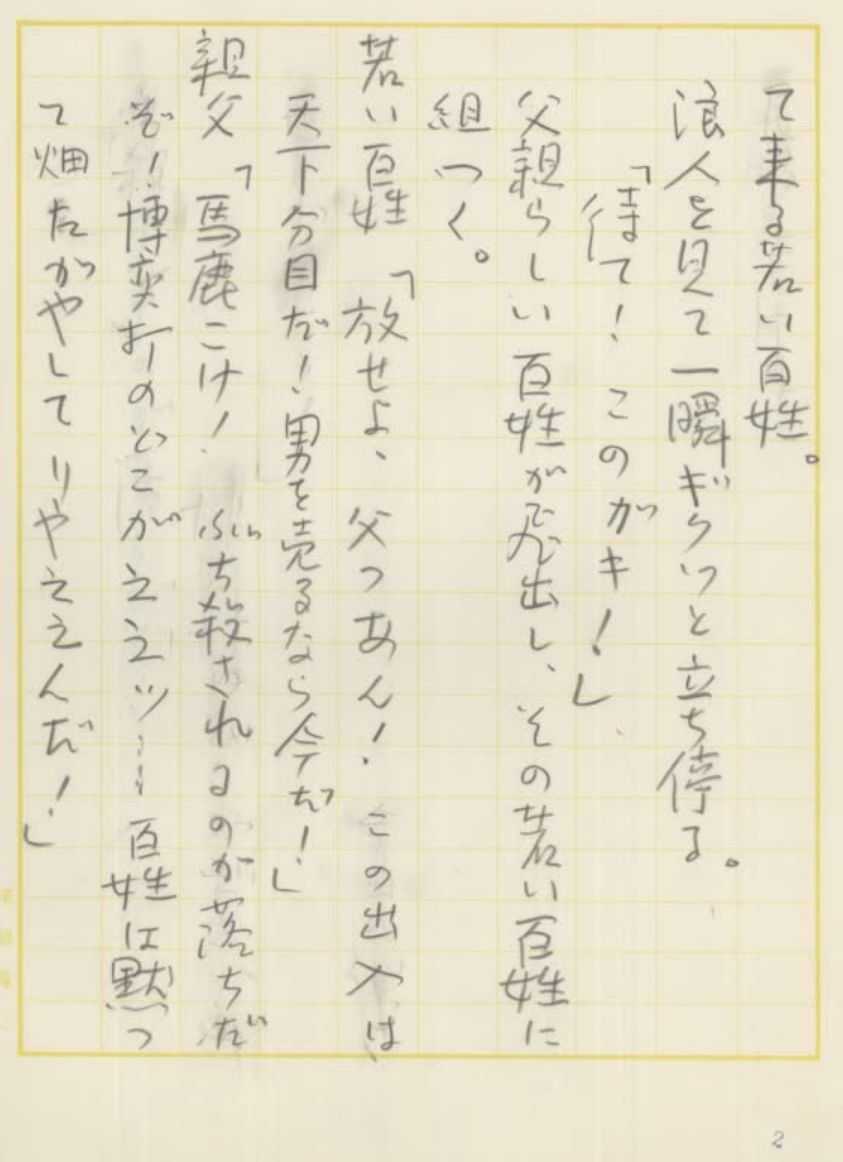 て来る若い百姓。
浪人を見て一瞬ギクッと立ち停る。
「待て！このガキ！」
父親らしい百姓が飛出し、その若い百姓に
組つく。
若い百姓「放せよ、父つあん！この出入は
天下分目だ！男を売るなら今だ！」
親父「馬鹿こけ！ぶち殺されるのが落ちだ
ぞ！博奕打のどこがええッ……百姓は黙つ
て畑たがやしてりやええんだ！」
2